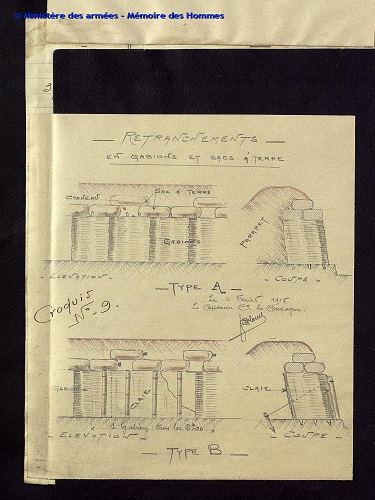 © Ministère des armées - Mémoire des Hommes
3
RETRANCHEMENTS
EN GABIONS ET SACS À TERRE
CRÉNEAU
SAC À TERRE
GABIONS
PARAPET
- ELEVATION -
- COUPE -
- TYPE A -
Le 2 1916
Le Capitaine Ct la Compagnie
Croquis
No 9.
GABION
CLAIE
CLAIE
1 Gabion tous les 2m00
- ELEVATION -
- COUPE -
- TYPE B -